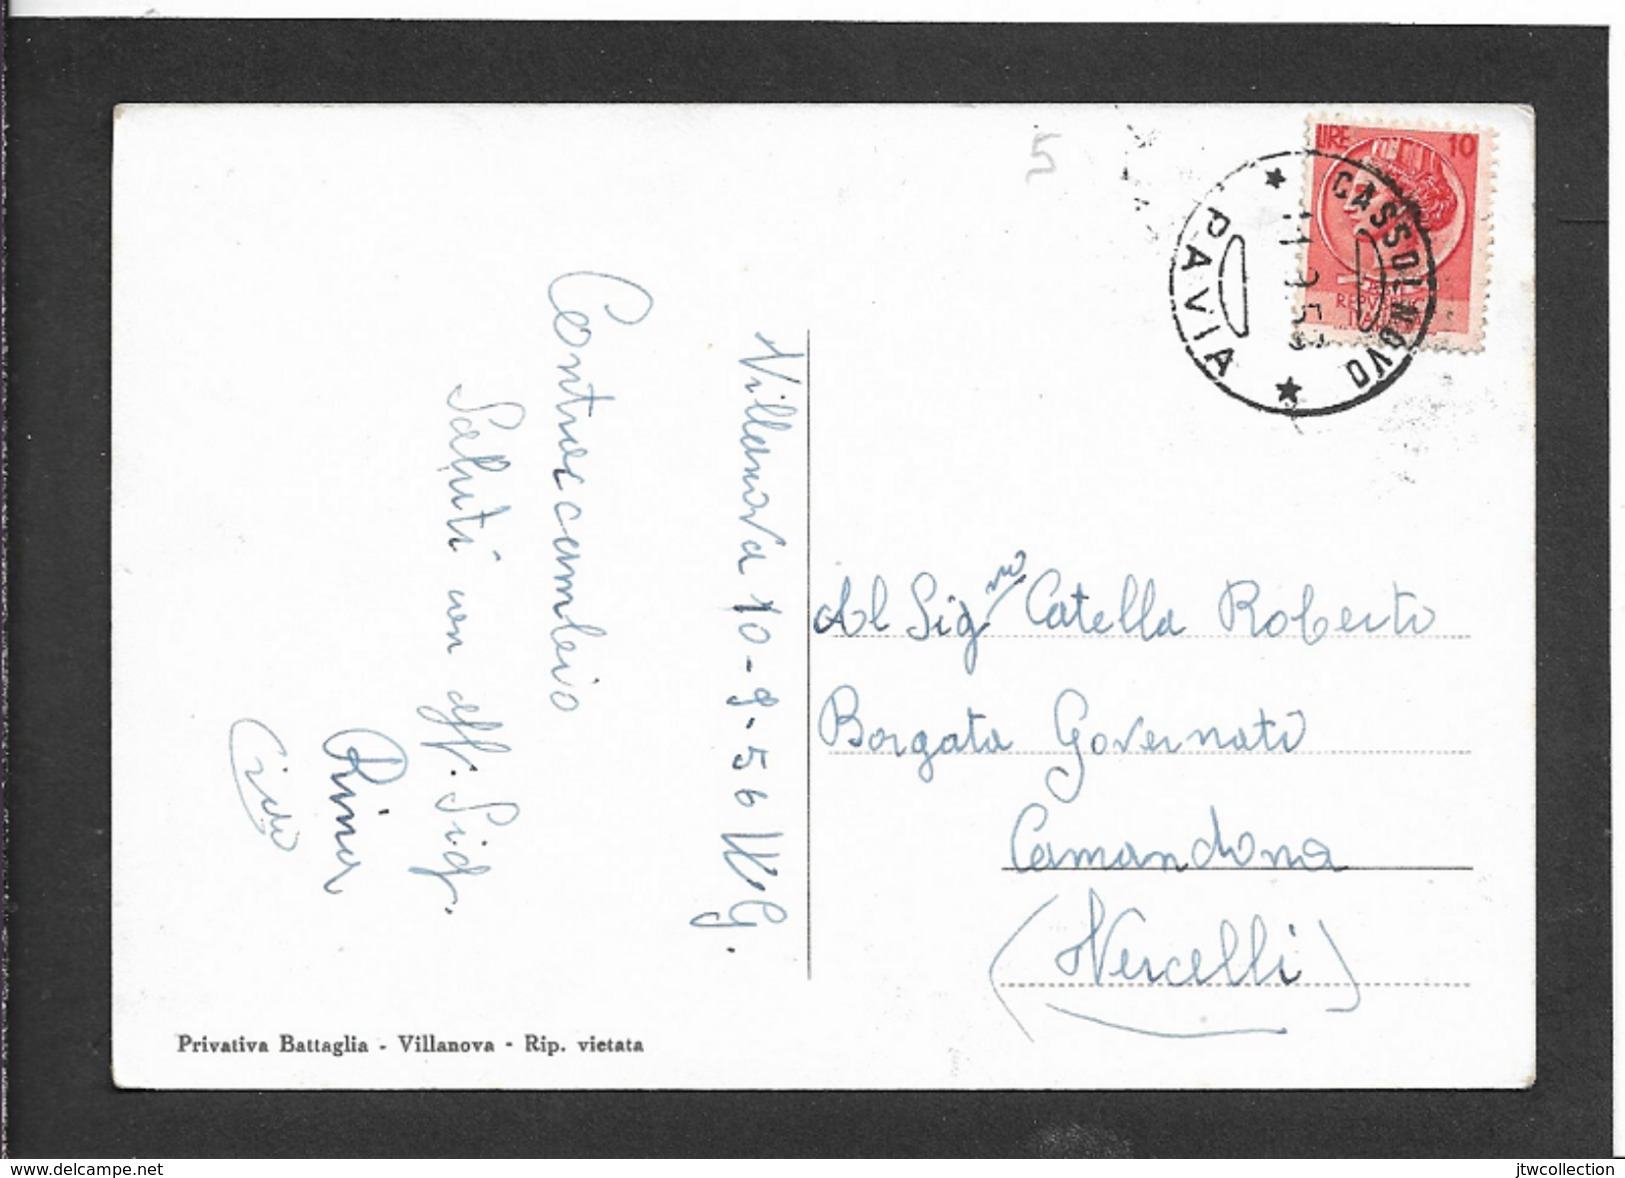 5
LIRE 10
CASSOLNOVO
PAVIA
Villanova 10-9-56
Contraccambio
Saluti con aff. Sig.
Rina
Al Sig. Catella Roberto
Borgata Governati
Camandona
(Vercelli)
Privativa Battaglia - Villanova - Rip. vietata
www.delcampe.net
jtwcollection